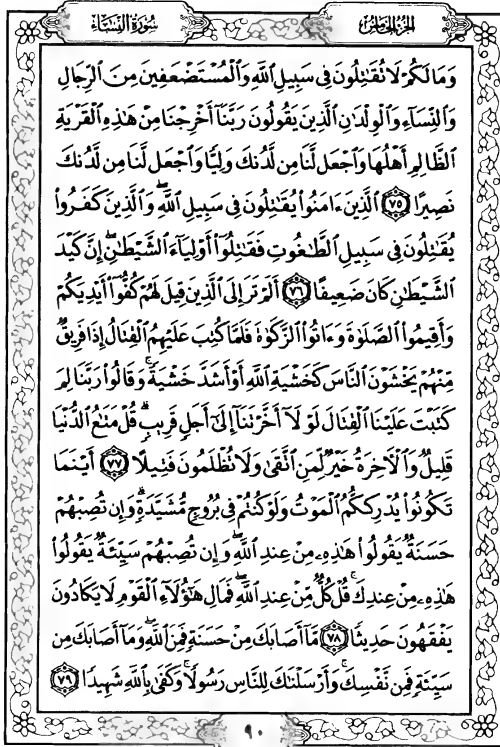 الجزء الخامس
سورة النساء
وَمَا لَكُمْ لَا تُقَٰتِلُونَ فِى سَبِيلِ ٱللَّهِ وَٱلْمُسْتَضْعَفِينَ مِنَ ٱلرِّجَالِ
وَٱلنِّسَآءِ وَٱلْوِلْدَٰنِ ٱلَّذِينَ يَقُولُونَ رَبَّنَآ أَخْرِجْنَا مِنْ هَٰذِهِ ٱلْقَرْيَةِ
ٱلظَّالِمِ أَهْلُهَا وَٱجْعَل لَّنَا مِن لَّدُنكَ وَلِيًّا وَٱجْعَل لَّنَا مِن لَّدُنكَ
نَصِيرًا ٧٥ ٱلَّذِينَ ءَامَنُوا۟ يُقَٰتِلُونَ فِى سَبِيلِ ٱللَّهِۖ وَٱلَّذِينَ كَفَرُوا۟
يُقَٰتِلُونَ فِى سَبِيلِ ٱلطَّٰغُوتِ فَقَٰتِلُوٓا۟ أَوْلِيَآءَ ٱلشَّيْطَٰنِۖ إِنَّ كَيْدَ
ٱلشَّيْطَٰنِ كَانَ ضَعِيفًا ٧٦ أَلَمْ تَرَ إِلَى ٱلَّذِينَ قِيلَ لَهُمْ كُفُّوٓا۟ أَيْدِيَكُمْ
وَأَقِيمُوا۟ ٱلصَّلَوٰةَ وَءَاتُوا۟ ٱلزَّكَوٰةَ فَلَمَّا كُتِبَ عَلَيْهِمُ ٱلْقِتَالُ إِذَا فَرِيقٌ
مِّنْهُمْ يَخْشَوْنَ ٱلنَّاسَ كَخَشْيَةِ ٱللَّهِ أَوْ أَشَدَّ خَشْيَةًۚ وَقَالُوا۟ رَبَّنَا لِمَ
كَتَبْتَ عَلَيْنَا ٱلْقِتَالَ لَوْلَآ أَخَّرْتَنَآ إِلَىٰٓ أَجَلٍ قَرِيبٍۗ قُلْ مَتَٰعُ ٱلدُّنْيَا
قَلِيلٌ وَٱلْءَاخِرَةُ خَيْرٌ لِّمَنِ ٱتَّقَىٰ وَلَا تُظْلَمُونَ فَتِيلًا ٧٧ أَيْنَمَا
تَكُونُوا۟ يُدْرِككُّمُ ٱلْمَوْتُ وَلَوْ كُنتُمْ فِى بُرُوجٍ مُّشَيَّدَةٍۗ وَإِن تُصِبْهُمْ
حَسَنَةٌ يَقُولُوا۟ هَٰذِهِۦ مِنْ عِندِ ٱللَّهِۖ وَإِن تُصِبْهُمْ سَيِّئَةٌ يَقُولُوا۟
هَٰذِهِۦ مِنْ عِندِكَۚ قُلْ كُلٌّ مِّنْ عِندِ ٱللَّهِۖ فَمَالِ هَٰٓؤُلَآءِ ٱلْقَوْمِ لَا يَكَادُونَ
يَفْقَهُونَ حَدِيثًا ٧٨ مَّآ أَصَابَكَ مِنْ حَسَنَةٍ فَمِنَ ٱللَّهِۖ وَمَآ أَصَابَكَ مِن
سَيِّئَةٍ فَمِن نَّفْسِكَۚ وَأَرْسَلْنَٰكَ لِلنَّاسِ رَسُولًاۚ وَكَفَىٰ بِٱللَّهِ شَهِيدًا ٧٩
٩٠